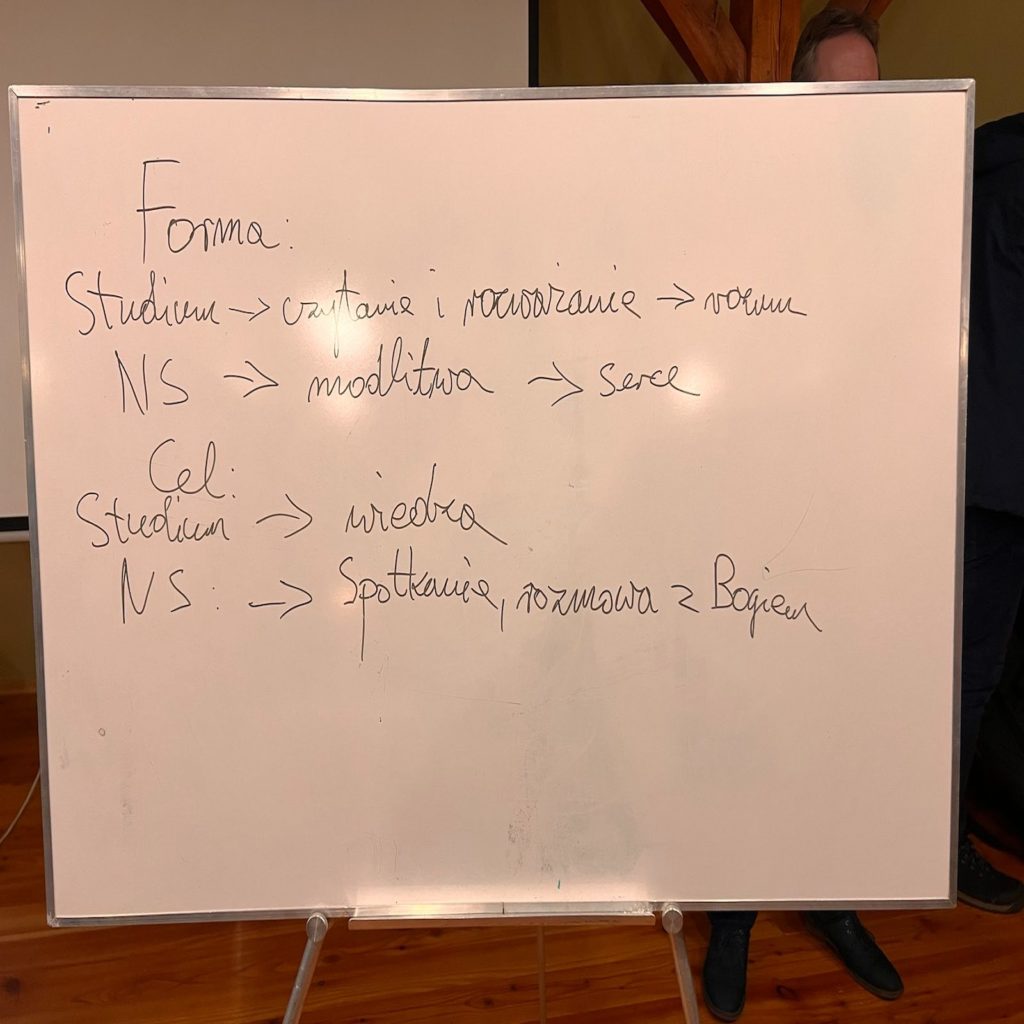 Forma:
Studium → czytanie i rozważanie → rozum
NS → modlitwa → serce
Cel:
Studium → wiedza
NS: → Spotkanie, rozmowa z Bogiem